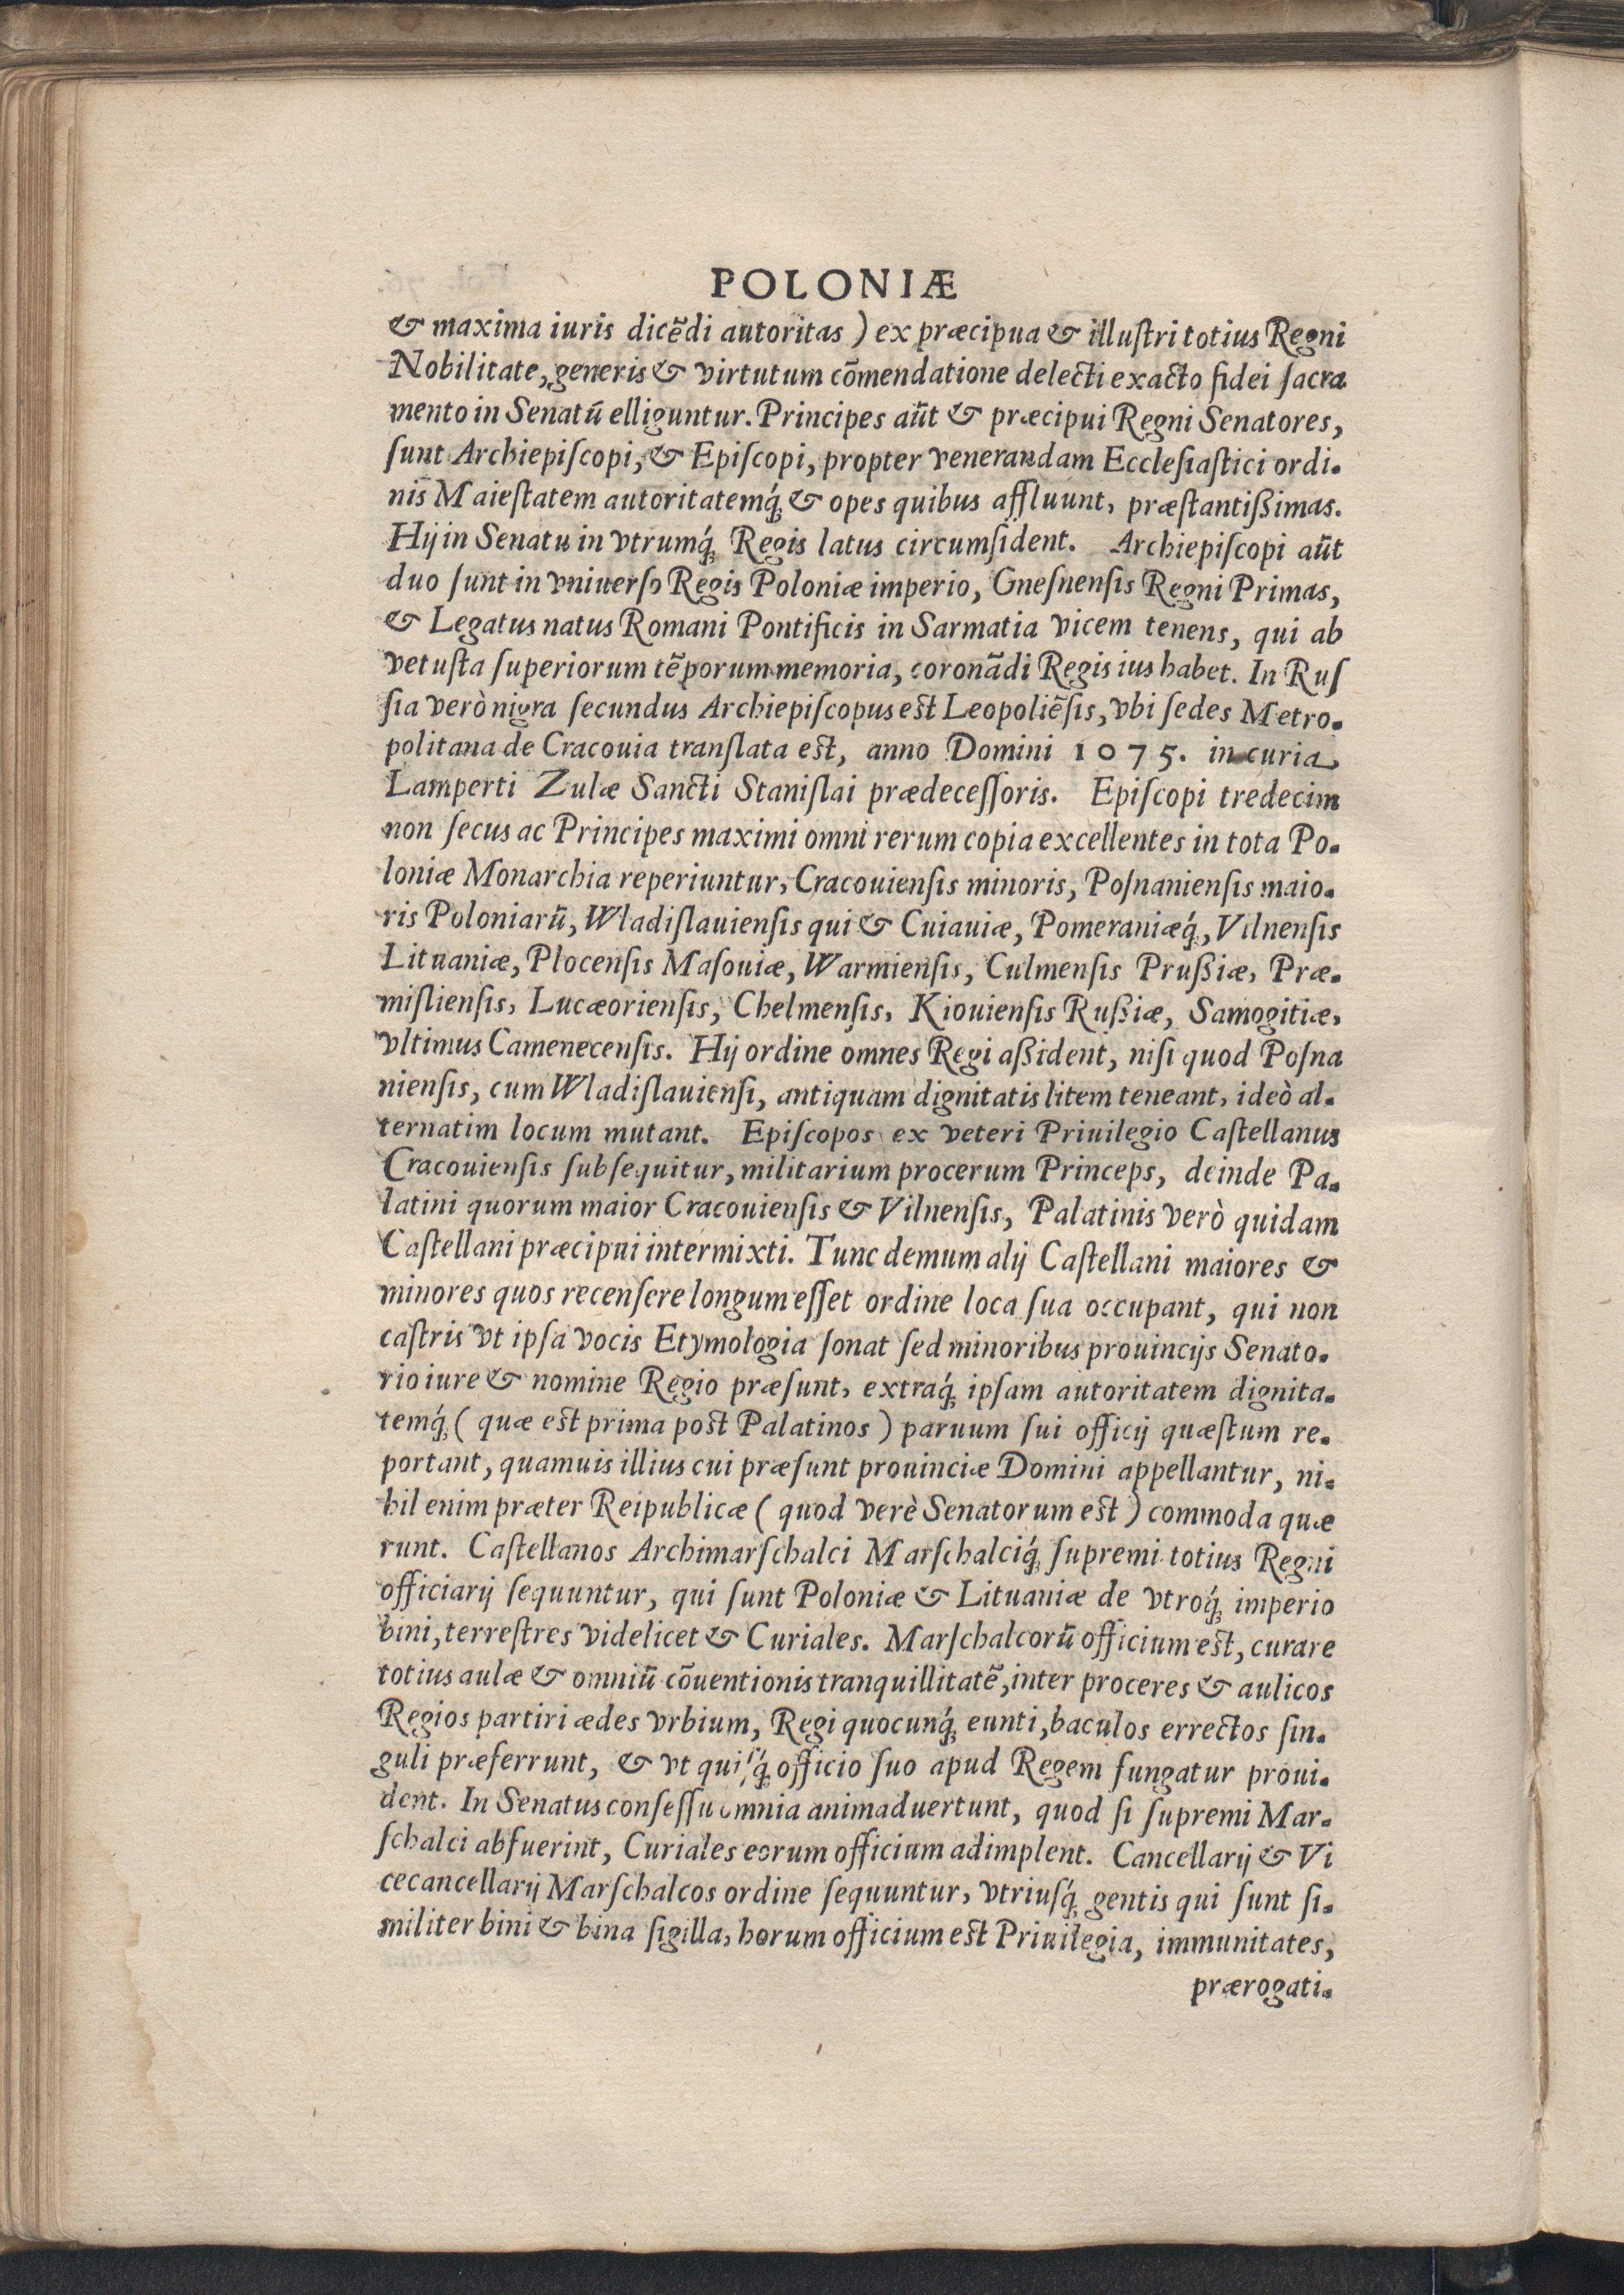 POLONIÆ
& maxima iuris dicẽdi autoritas ) ex præcipua & illuſtri totius Regni
Nobilitate, generis & virtutum cõmendatione delecti exacto fidei ſacra
mento in Senatũ elliguntur. Principes aũt & præcipui Regni Senatores,
ſunt Archiepiſcopi, & Epiſcopi, propter venerandam Eccleſiaſtici ordi-
nis Maieſtatem autoritatemq́; & opes quibus affluunt, præſtantißimas.
Hij in Senatu in vtrumq́; Regis latus circumſident. Archiepiſcopi aũt
duo ſunt in vniuerſo Regis Poloniæ imperio, Gneſnenſis Regni Primas,
& Legatus natus Romani Pontificis in Sarmatia vicem tenens, qui ab
vetuſta ſuperiorum tẽporum memoria, coronãdi Regis ius habet. In Ruſ
ſia verò nigra ſecundus Archiepiſcopus eſt Leopoliẽſis, vbi ſedes Metro-
politana de Cracouia tranſlata eſt, anno Domini 1075. in curia
Lamperti Zulæ Sancti Staniſlai prædeceſſoris. Epiſcopi tredecim
non ſecus ac Principes maximi omni rerum copia excellentes in tota Po-
loniæ Monarchia reperiuntur, Cracouienſis minoris, Poſnanienſis maio-
ris Poloniarũ, Wladiſlauienſis qui & Cuiauiæ, Pomeraniæq́;, Vilnenſis
Lituaniæ, Plocenſis Maſouiæ, Warmienſis, Culmenſis Prußiæ, Præ-
miſlienſis, Lucæorienſis, Chelmenſis, Kiouienſis Rußiæ, Samogitiæ,
vltimus Camenecenſis. Hij ordine omnes Regi aßident, niſi quod Poſna
nienſis, cum Wladiſlauienſi, antiquam dignitatis litem teneant, ideò al-
ternatim locum mutant. Epiſcopos ex veteri Priuilegio Caſtellanus
Cracouienſis ſubſequitur, militarium procerum Princeps, deinde Pa-
latini quorum maior Cracouienſis & Vilnenſis, Palatinis verò quidam
Caſtellani præcipui intermixti. Tunc demum alij Caſtellani maiores &
minores quos recenſere longum eſſet ordine loca ſua occupant, qui non
caſtris vt ipſa vocis Etymologia ſonat ſed minoribus prouincijs Senato-
rio iure & nomine Regio præſunt, extraq́; ipſam autoritatem dignita-
temq́; ( quæ eſt prima poſt Palatinos ) paruum ſui officij quæſtum re-
portant, quamuis illius cui præſunt prouinciæ Domini appellantur, ni-
hil enim præter Reipublicæ ( quod verè Senatorum eſt ) commoda quæ
runt. Caſtellanos Archimarſchalci Marſchalciq́; ſupremi totius Regni
officiarij ſequuntur, qui ſunt Poloniæ & Lituaniæ de vtroq́; imperio
bini, terreſtres videlicet & Curiales. Marſchalcorũ officium eſt, curare
totius aulæ & omniũ cõuentionis tranquillitatẽ, inter proceres & aulicos
Regios partiri ædes vrbium, Regi quocunq́; eunti, baculos errectos ſin-
guli præferrunt, & vt quiſq́; officio ſuo apud Regem fungatur proui-
dent. In Senatus conſeſſu omnia animaduertunt, quod ſi ſupremi Mar-
ſchalci abfuerint, Curiales eorum officium adimplent. Cancellarij & Vi
cecancellarij Marſchalcos ordine ſequuntur, vtriuſq́; gentis qui ſunt ſi-
militer bini & bina ſigilla, horum officium eſt Priuilegia, immunitates,
prærogati-